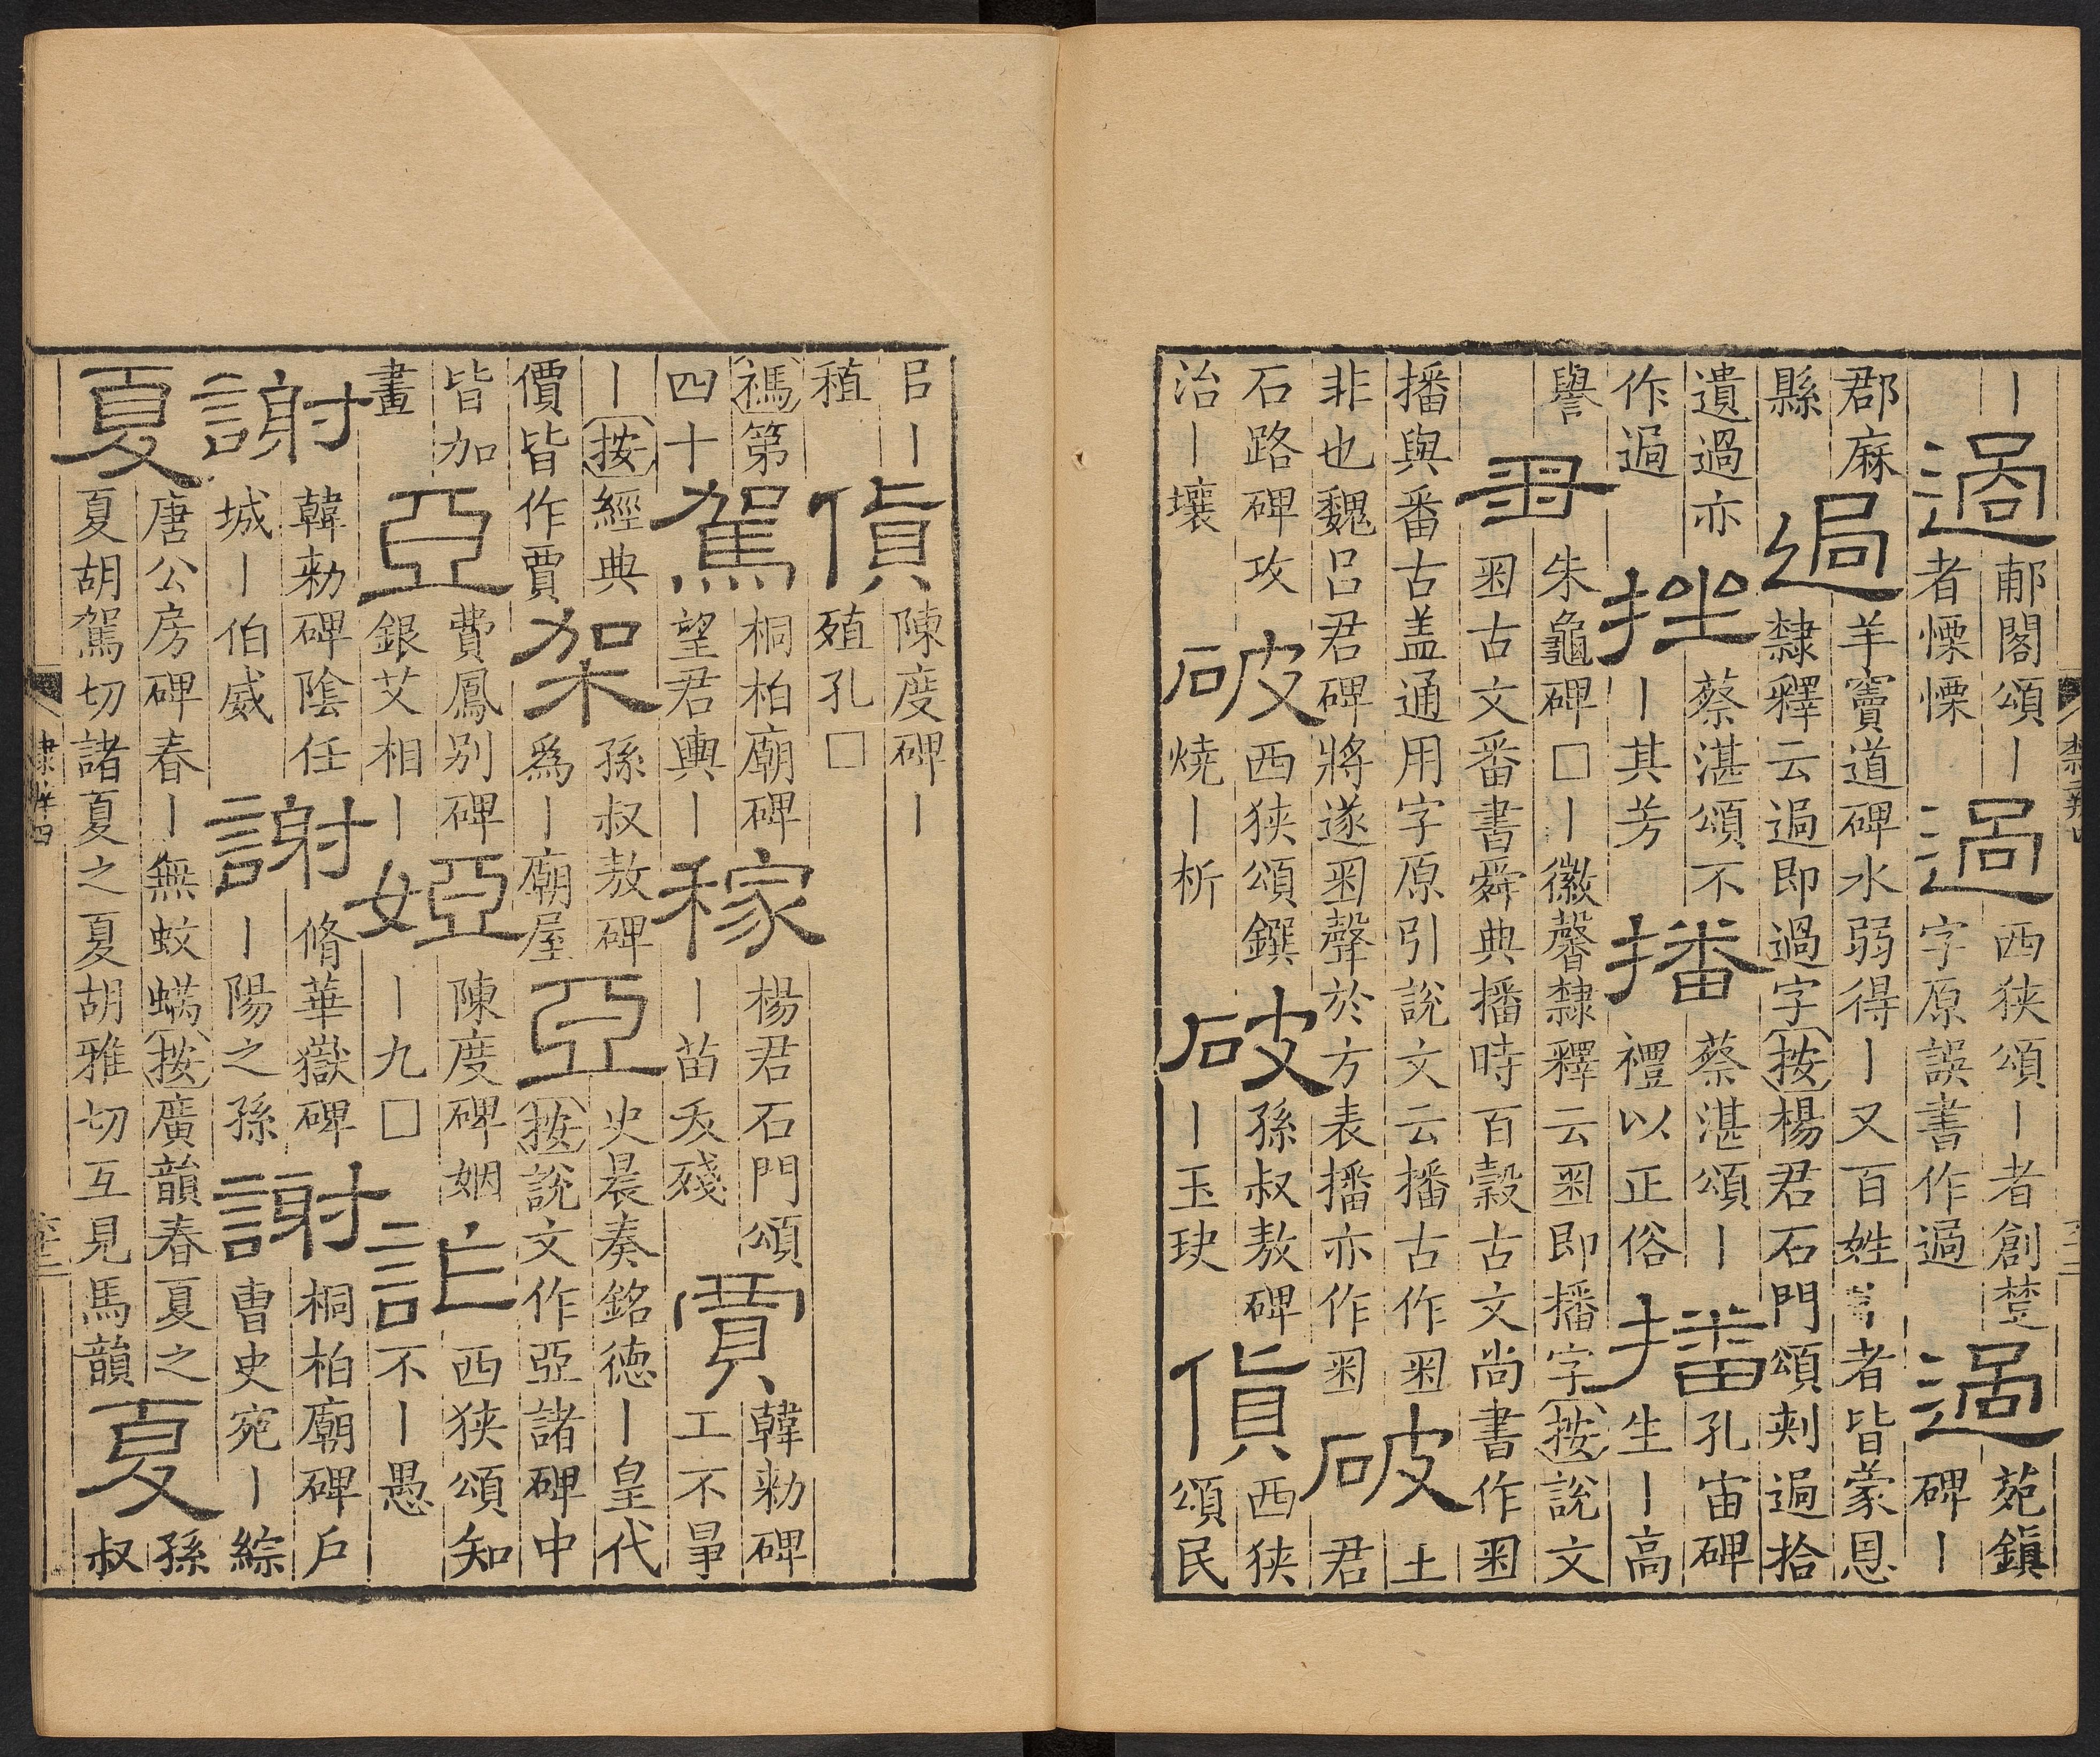 丨
過
郙閣頌丨
者慄慄
過
西狹頌丨者創楚
字原誤書作過
過
苑鎮
碑丨
郡麻
縣
過
羊竇道碑水弱得丨又百姓者皆蒙恩
隸釋云過即過字按楊君石門頌剌過拾
遺過亦
作過
挫
蔡湛頌不
丨其芳
播
蔡湛頌丨
禮以正俗
播
孔宙碑
生丨高
譽
朱龜碑□丨徽馨隸釋云𤰔即播字按說文
𤰔古文番書舜典播時百穀古文尚書作𤰔
播與番古盖通用字原引說文云播古作𤰔
非也魏呂君碑將遂𤰔聲於方表播亦作𤰔
破
土
君
石路碑攻
治丨壤
破
西狹頌鐉
燒丨析
破
孫叔敖碑
丨玉玦
貨
西狹
頌民
㠯丨
稙
貨
陳度碑丨
殖孔□
禡第
四十
駕
桐柏廟碑
望君輿丨
稼
楊君石門頌
丨苗夭殘
賈
韓勑碑
工不
丨按經典
價皆作賈
架
孫叔敖碑
爲丨廟屋
亞
史晨奏銘德丨皇代
按說文作亞諸碑中
皆加
畫
亞
費鳳别碑
銀艾相丨
婭
陳度碑姻
丨九□
詐
西狹頌知
不丨愚
謝
韓勑碑陰任
城丨伯威
謝
脩華嶽碑
丨陽之孫
謝
桐柏廟碑戶
曹史宛丨綜
夏
唐公房碑春丨無蚊蟎按廣韻春夏之
夏胡駕切諸夏之夏胡雅切互見馬韻
夏
孫
叔